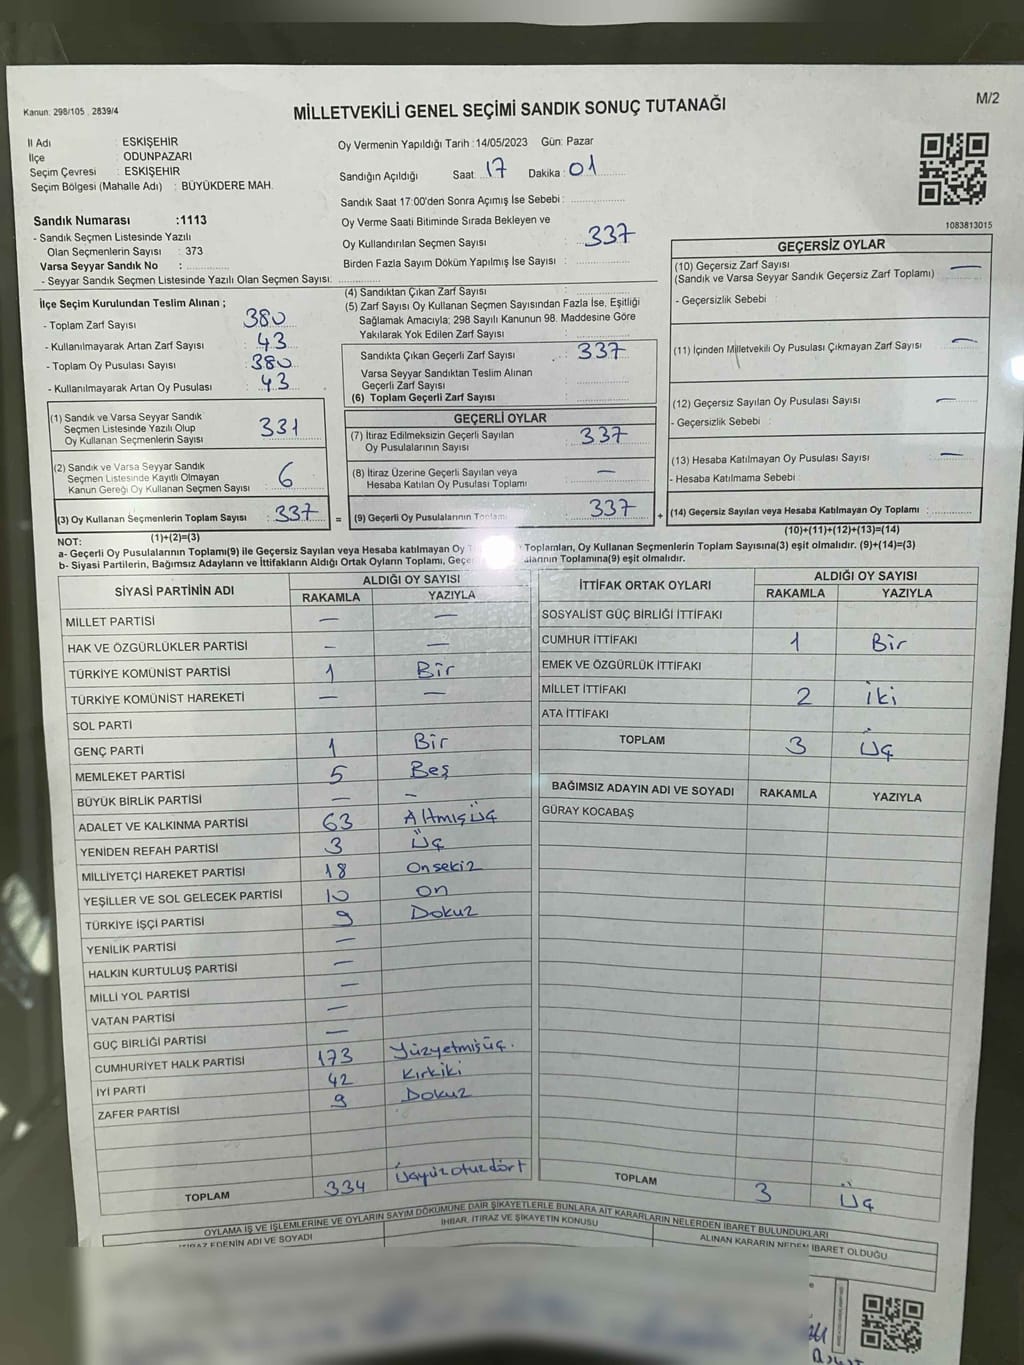 Kanun: 298/105 , 2839/4
MİLLETVEKİLİ GENEL SEÇİMİ SANDIK SONUÇ TUTANAĞI
M/2
İl Adı : ESKİŞEHİR
İlçe : ODUNPAZARI
Seçim Çevresi : ESKİŞEHİR
Seçim Bölgesi (Mahalle Adı) : BÜYÜKDERE MAH.
Sandık Numarası :1113
- Sandık Seçmen Listesinde Yazılı
Olan Seçmenlerin Sayısı : 373
Varsa Seyyar Sandık No :
- Seyyar Sandık Seçmen Listesinde Yazılı Olan Seçmen Sayısı:
Oy Vermenin Yapıldığı Tarih :14/05/2023 Gün: Pazar
Sandığın Açıldığı Saat: 17 Dakika: 01
Sandık Saat 17:00'den Sonra Açımış İse Sebebi :
Oy Verme Saati Bitiminde Sırada Bekleyen ve
Oy Kullandırılan Seçmen Sayısı : 337
Birden Fazla Sayım Döküm Yapılmış İse Sayısı :
1083813015
İlçe Seçim Kurulundan Teslim Alınan ;
- Toplam Zarf Sayısı : 380
- Kullanılmayarak Artan Zarf Sayısı : 43
- Toplam Oy Pusulası Sayısı : 380
- Kullanılmayarak Artan Oy Pusulası : 43
(1) Sandık ve Varsa Seyyar Sandık
Seçmen Listesinde Yazılı Olup
Oy Kullanan Seçmenlerin Sayısı : 331
(2) Sandık ve Varsa Seyyar Sandık
Seçmen Listesinde Kayıtlı Olmayan
Kanun Gereği Oy Kullanan Seçmen Sayısı : 6
(3) Oy Kullanan Seçmenlerin Toplam Sayısı : 337
(1)+(2)=(3)
(4) Sandıktan Çıkan Zarf Sayısı :
(5) Zarf Sayısı Oy Kullanan Seçmen Sayısından Fazla İse, Eşitliği
Sağlamak Amacıyla; 298 Sayılı Kanunun 98. Maddesine Göre
Yakılarak Yok Edilen Zarf Sayısı :
Sandıkta Çıkan Geçerli Zarf Sayısı : 337
Varsa Seyyar Sandıktan Teslim Alınan
Geçerli Zarf Sayısı :
(6) Toplam Geçerli Zarf Sayısı :
GEÇERLİ OYLAR
(7) İtiraz Edilmeksizin Geçerli Sayılan
Oy Pusulalarının Sayısı : 337
(8) İtiraz Üzerine Geçerli Sayılan veya
Hesaba Katılan Oy Pusulası Toplamı : —
= (9) Geçerli Oy Pusulalarının Toplamı 337
GEÇERSİZ OYLAR
(10) Geçersiz Zarf Sayısı : —
(Sandık ve Varsa Seyyar Sandık Geçersiz Zarf Toplamı)
- Geçersizlik Sebebi :
(11) İçinden Milletvekili Oy Pusulası Çıkmayan Zarf Sayısı : —
(12) Geçersiz Sayılan Oy Pusulası Sayısı : —
- Geçersizlik Sebebi :
(13) Hesaba Katılmayan Oy Pusulası Sayısı : —
- Hesaba Katılmama Sebebi :
+ (14) Geçersiz Sayılan veya Hesaba Katılmayan Oy Toplamı :
(10)+(11)+(12)+(13)=(14)
NOT:
a- Geçerli Oy Pusulalarının Toplamı(9) ile Geçersiz Sayılan veya Hesaba katılmayan Oy Toplamları, Oy Kullanan Seçmenlerin Toplam Sayısına(3) eşit olmalıdır. (9)+(14)=(3)
b- Siyasi Partilerin, Bağımsız Adayların ve İttifakların Aldığı Ortak Oyların Toplamı, Toplamına(9) eşit olmalıdır.
SİYASİ PARTİNİN ADI ALDIĞI OY SAYISI
RAKAMLA YAZIYLA
MİLLET PARTİSİ — —
HAK VE ÖZGÜRLÜKLER PARTİSİ — —
TÜRKİYE KOMÜNİST PARTİSİ 1 Bir
TÜRKİYE KOMÜNİST HAREKETİ — —
SOL PARTİ
GENÇ PARTİ 1 Bir
MEMLEKET PARTİSİ 5 Beş
BÜYÜK BİRLİK PARTİSİ — —
ADALET VE KALKINMA PARTİSİ 63 Altmışüç
YENİDEN REFAH PARTİSİ 3 Üç
MİLLİYETÇİ HAREKET PARTİSİ 18 Onsekiz
YEŞİLLER VE SOL GELECEK PARTİSİ 10 On
TÜRKİYE İŞÇİ PARTİSİ 9 Dokuz
YENİLİK PARTİSİ —
HALKIN KURTULUŞ PARTİSİ —
MİLLİ YOL PARTİSİ —
VATAN PARTİSİ —
GÜÇ BİRLİĞİ PARTİSİ —
CUMHURİYET HALK PARTİSİ 173 Yüzyetmişüç.
İYİ PARTİ 42 Kırkiki
ZAFER PARTİSİ 9 Dokuz
TOPLAM 334 Üçyüzotuzdört
İTTİFAK ORTAK OYLARI ALDIĞI OY SAYISI
RAKAMLA YAZIYLA
SOSYALİST GÜÇ BİRLİĞİ İTTİFAKI
CUMHUR İTTİFAKI 1 Bir
EMEK VE ÖZGÜRLÜK İTTİFAKI
MİLLET İTTİFAKI 2 İki
ATA İTTİFAKI
TOPLAM 3 Üç
BAĞIMSIZ ADAYIN ADI VE SOYADI RAKAMLA YAZIYLA
GÜRAY KOCABAŞ
TOPLAM 3 Üç
OYLAMA İŞ VE İŞLEMLERİNE VE OYLARIN SAYIM DÖKÜMÜNE DAİR ŞİKAYETLERLE BUNLARA AİT KARARLARIN NELERDEN İBARET BULUNDUKLARI
İTİRAZ EDENİN ADI VE SOYADI
İHBAR, İTİRAZ VE ŞİKAYETİN KONUSU
ALINAN KARARIN NEDEN İBARET OLDUĞU